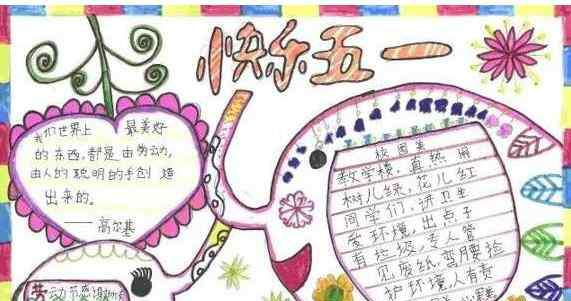 快乐五一
我们世界上 最美好
的东西,都是由劳动,
由人的聪明的手创造
出来的。
——高尔基
校园美
教学楼,真热闹
树儿绿,花儿红
同学们,讲卫生
爱环境,出点子
有垃圾,专人管
见废纸,弯腰捡
护环境,人有责
劳动节